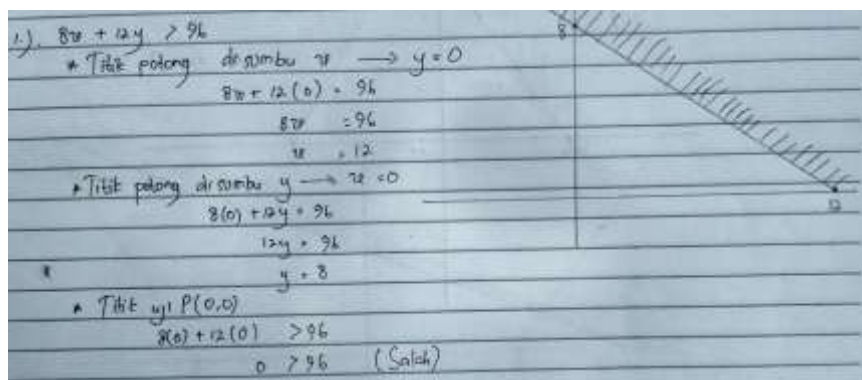 1.). 8x + 12y > 96
* Titik potong di sumbu x → y = 0
8x + 12(0) = 96
8x = 96
x = 12
* Titik potong di sumbu y → x = 0
8(0) + 12y = 96
12y = 96
y = 8
* Titik uji P(0,0)
8(0) + 12(0) > 96
0 > 96 (Salah)
8
12